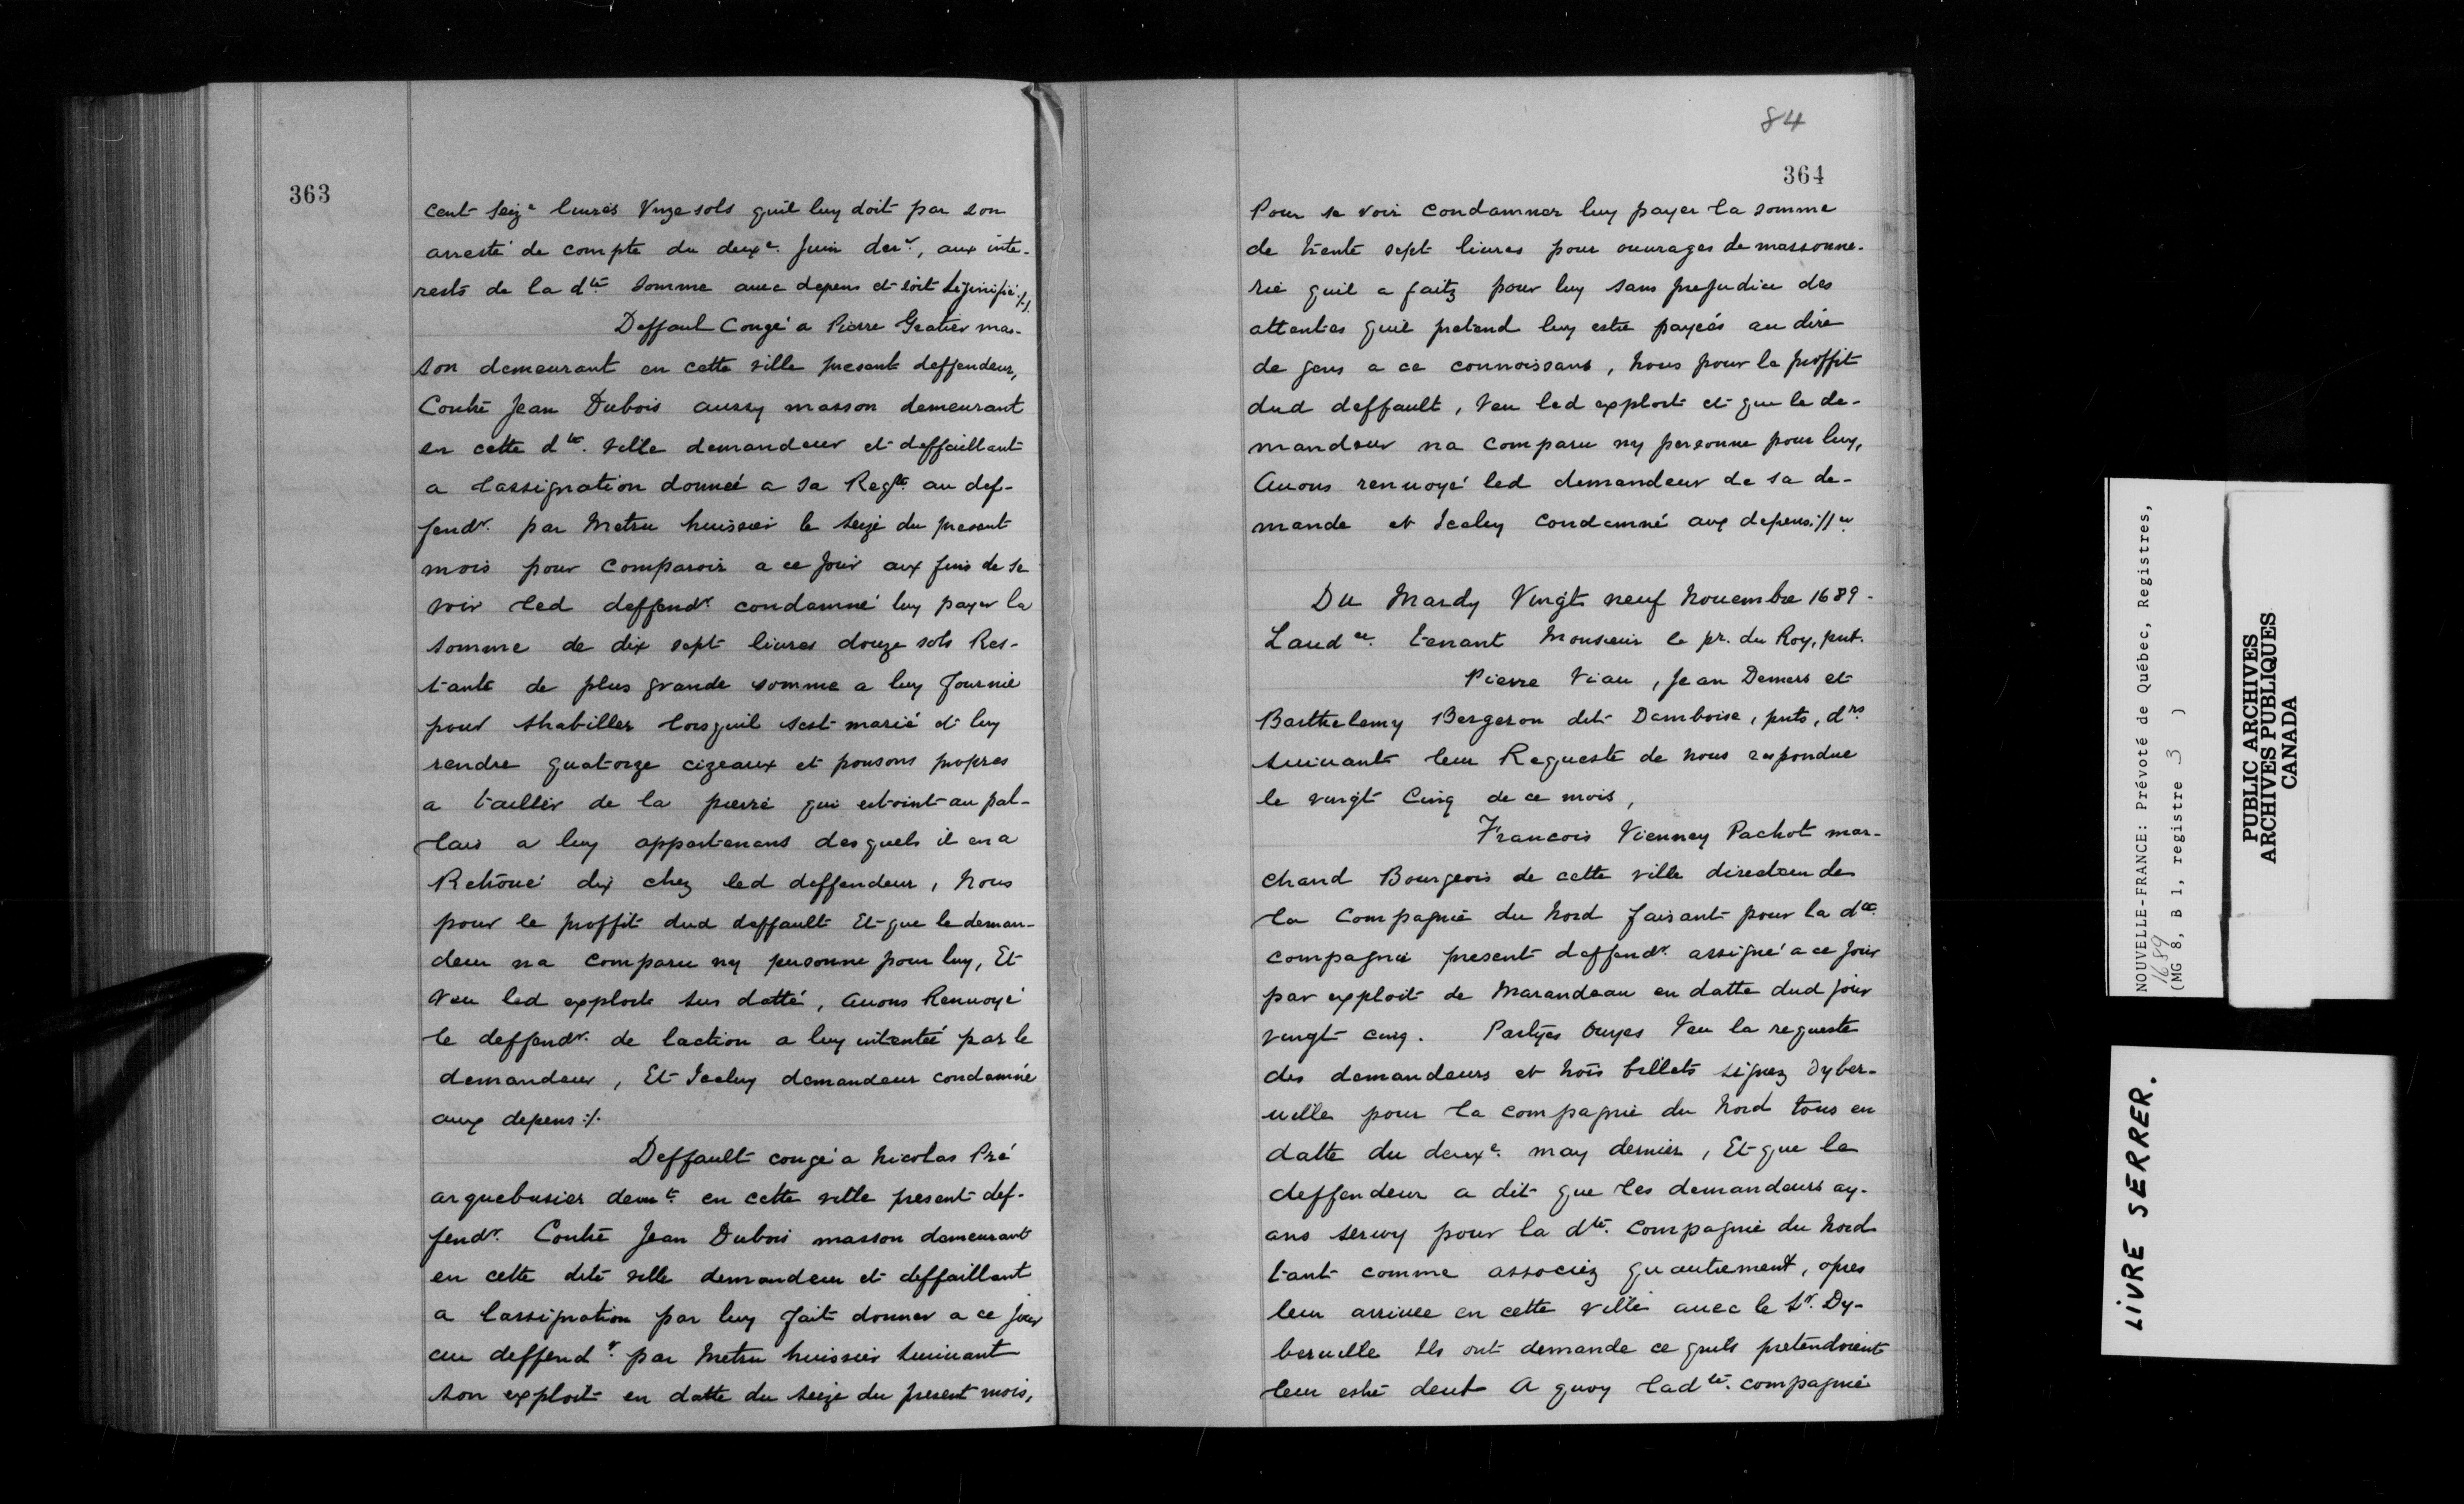 363
cent seize liures Vnze sols quil luy doit par son
arresté de compte du deuxe. Juin derr., aux inte-
rests de la dte. Somme auec depens et soit signiffié:/.
Deffaut Congé a Pierre Gratier mas-
son demeurant en cette ville present deffendeur,
Contre Jean Dubois aussy masson demeurant
en cette dte. ville demandeur et deffaillant
a lassignation donnée a sa Reqte. au def-
fendr. par Metru huissier le seize du present
mois pour Comparoir a ce Jour aux fins de se
voir led deffendr. condamné luy payer la
somme de dix sept liures douze sols Res-
tante de plus grande somme a luy fournie
pour shabiller lorsquil sest marié et luy
rendre quatorze cizeaux et ponsons propres
a tailler de la pierre qui estoint au pal-
lais a luy appartenans desquels il en a
Retrouué dix chez led deffendeur, Nous
pour le proffit dud deffault Et que le deman-
deur na comparu ny personne pour luy, Et
Veu led exploit sus datté, Auons Renuoyé
le deffendr. de laction a luy intentée par le
demandeur, Et Iceluy demandeur condamné
aux depens:/.
Deffault congé a Nicolas Pré
arquebusier demt. en cette ville present def-
fendr. Contre Jean Dubois masson demeurant
en cette dite ville demandeur et deffaillant
a lassignation par luy fait donner a ce jour
au deffendr. par Metru huissier suiuant
son exploit en datte du seize du present mois,
84
364
Pour se voir Condamner luy payer la somme
de trente sept liures pour ouurages de massonne-
rie quil a faitz pour luy sans prejudice des
attentes quil pretend luy estre payeés au dire
de gens a ce connoissans, Nous pour le proffit
dud deffault, Veu led exploit et que le de-
mandeur na Comparu ny personne pour luy,
Auons renuoyé led demandeur de sa de-
mande et Iceluy Condamné aux depens://
Du Mardy Vingt neuf Nouembre 1689-
Laudce. tenant Monsieur le pr. du Roy, pnt.
Pierre Viau, Jean Demers et
Barthelemy Bergeron dit Damboise, pnts, drs.
suiuant leur Requeste de nous respondue
le vingt Cinq de ce mois,
Francois Vienney Pachot mar-
chand Bourgeois de cette ville directeur de
la Compagnie du Nord faisant pour la dte.
compagnie present deffendr. assigné a ce jour
par exploit de Marandeau en datte dud jour
vingt cinq. Partyes Ouyes Veu la requeste
des demandeurs et trois billets signez Dyber-
uille pour la compagnie du Nord tous en
datte du deuxe. may dernier, Et que le
deffendeur a dit que les demandeurs ay-
ans seruy pour la dte. Compagnie du Nord
tant comme associez quautrement, apres
leur arriuee en cette ville auec le Sr. Dy-
beruille Ils ont demande ce quils pretendoient
leur estre deub A quoy ladte. compagnie
NOUVELLE-FRANCE: Prévoté de Québec, Registres,
1689
(MG 8, B 1, registre 3 )
PUBLIC ARCHIVES
ARCHIVES PUBLIQUES
CANADA
LIVRE SERRER.